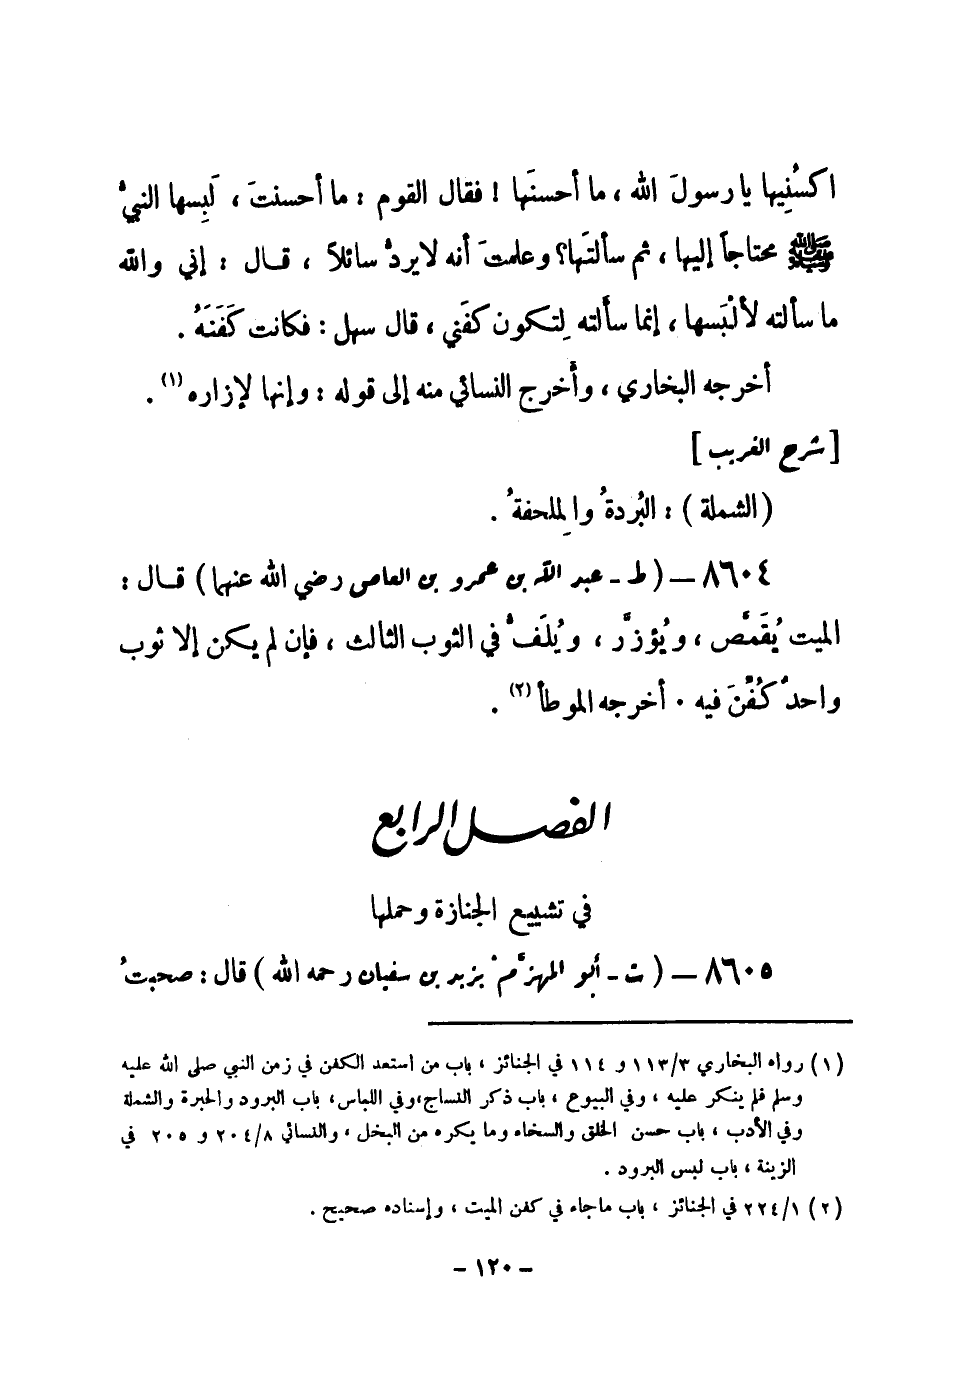 اكسُنِيها يا رسولَ الله ، ما أحسنَها ! فقال القوم : ما أحسنتَ ، لَبِسها النبيُّ
ﷺ محتاجاً إليها ، ثم سألتَها؟ وعلمتَ أنه لا يردُّ سائلاً ، قــال : إني والله
ما سألته لألْبَسها ، إنما سألته لِتكون كفَني ، قال سهل : فكانت كَفَنَهُ .
أخرجه البخاري ، وأخرج النسائي منه إلى قوله : وإنها لإزاره (١) .
[ شرح الغريب ]
( الشملة ) : البُردةُ والمِلحفةُ .
٨٦٠٤ – ( ط - عبد الله بن عمرو بن العاص رضي الله عنهما ) قــال :
الميت يُقَمَّص ، ويُؤزَّر ، ويُلَفُّ في الثوب الثالث ، فإن لم يكن إلا ثوب
واحدٌ كُفِّنَ فيه . أخرجه الموطأ (٢) .
الفصل الرابع
في تشييع الجنازة وحملها
٨٦٠٥ – ( ت - أبو المهزِّم يزيد بن سفيان رحمه الله ) قال : صحبتُ
(١) رواه البخاري ١١٣/٣ و ١١٤ في الجنائز ، باب من استعد الكفن في زمن النبي صلى الله عليه
وسلم فلم ينكر عليه ، وفي البيوع ، باب ذكر النساج،وفي اللباس، باب البرود والحبرة والشملة
وفي الأدب ، باب حسن الخلق والسخاء وما يكره من البخل ، والنسائي ٢٠٤/٨ و ٢٠٥ في
الزينة ، باب لبس البرود .
(٢) ٢٢٤/١ في الجنائز ، باب ماجاء في كفن الميت ، وإسناده صحيح .
- ١٢٠ -